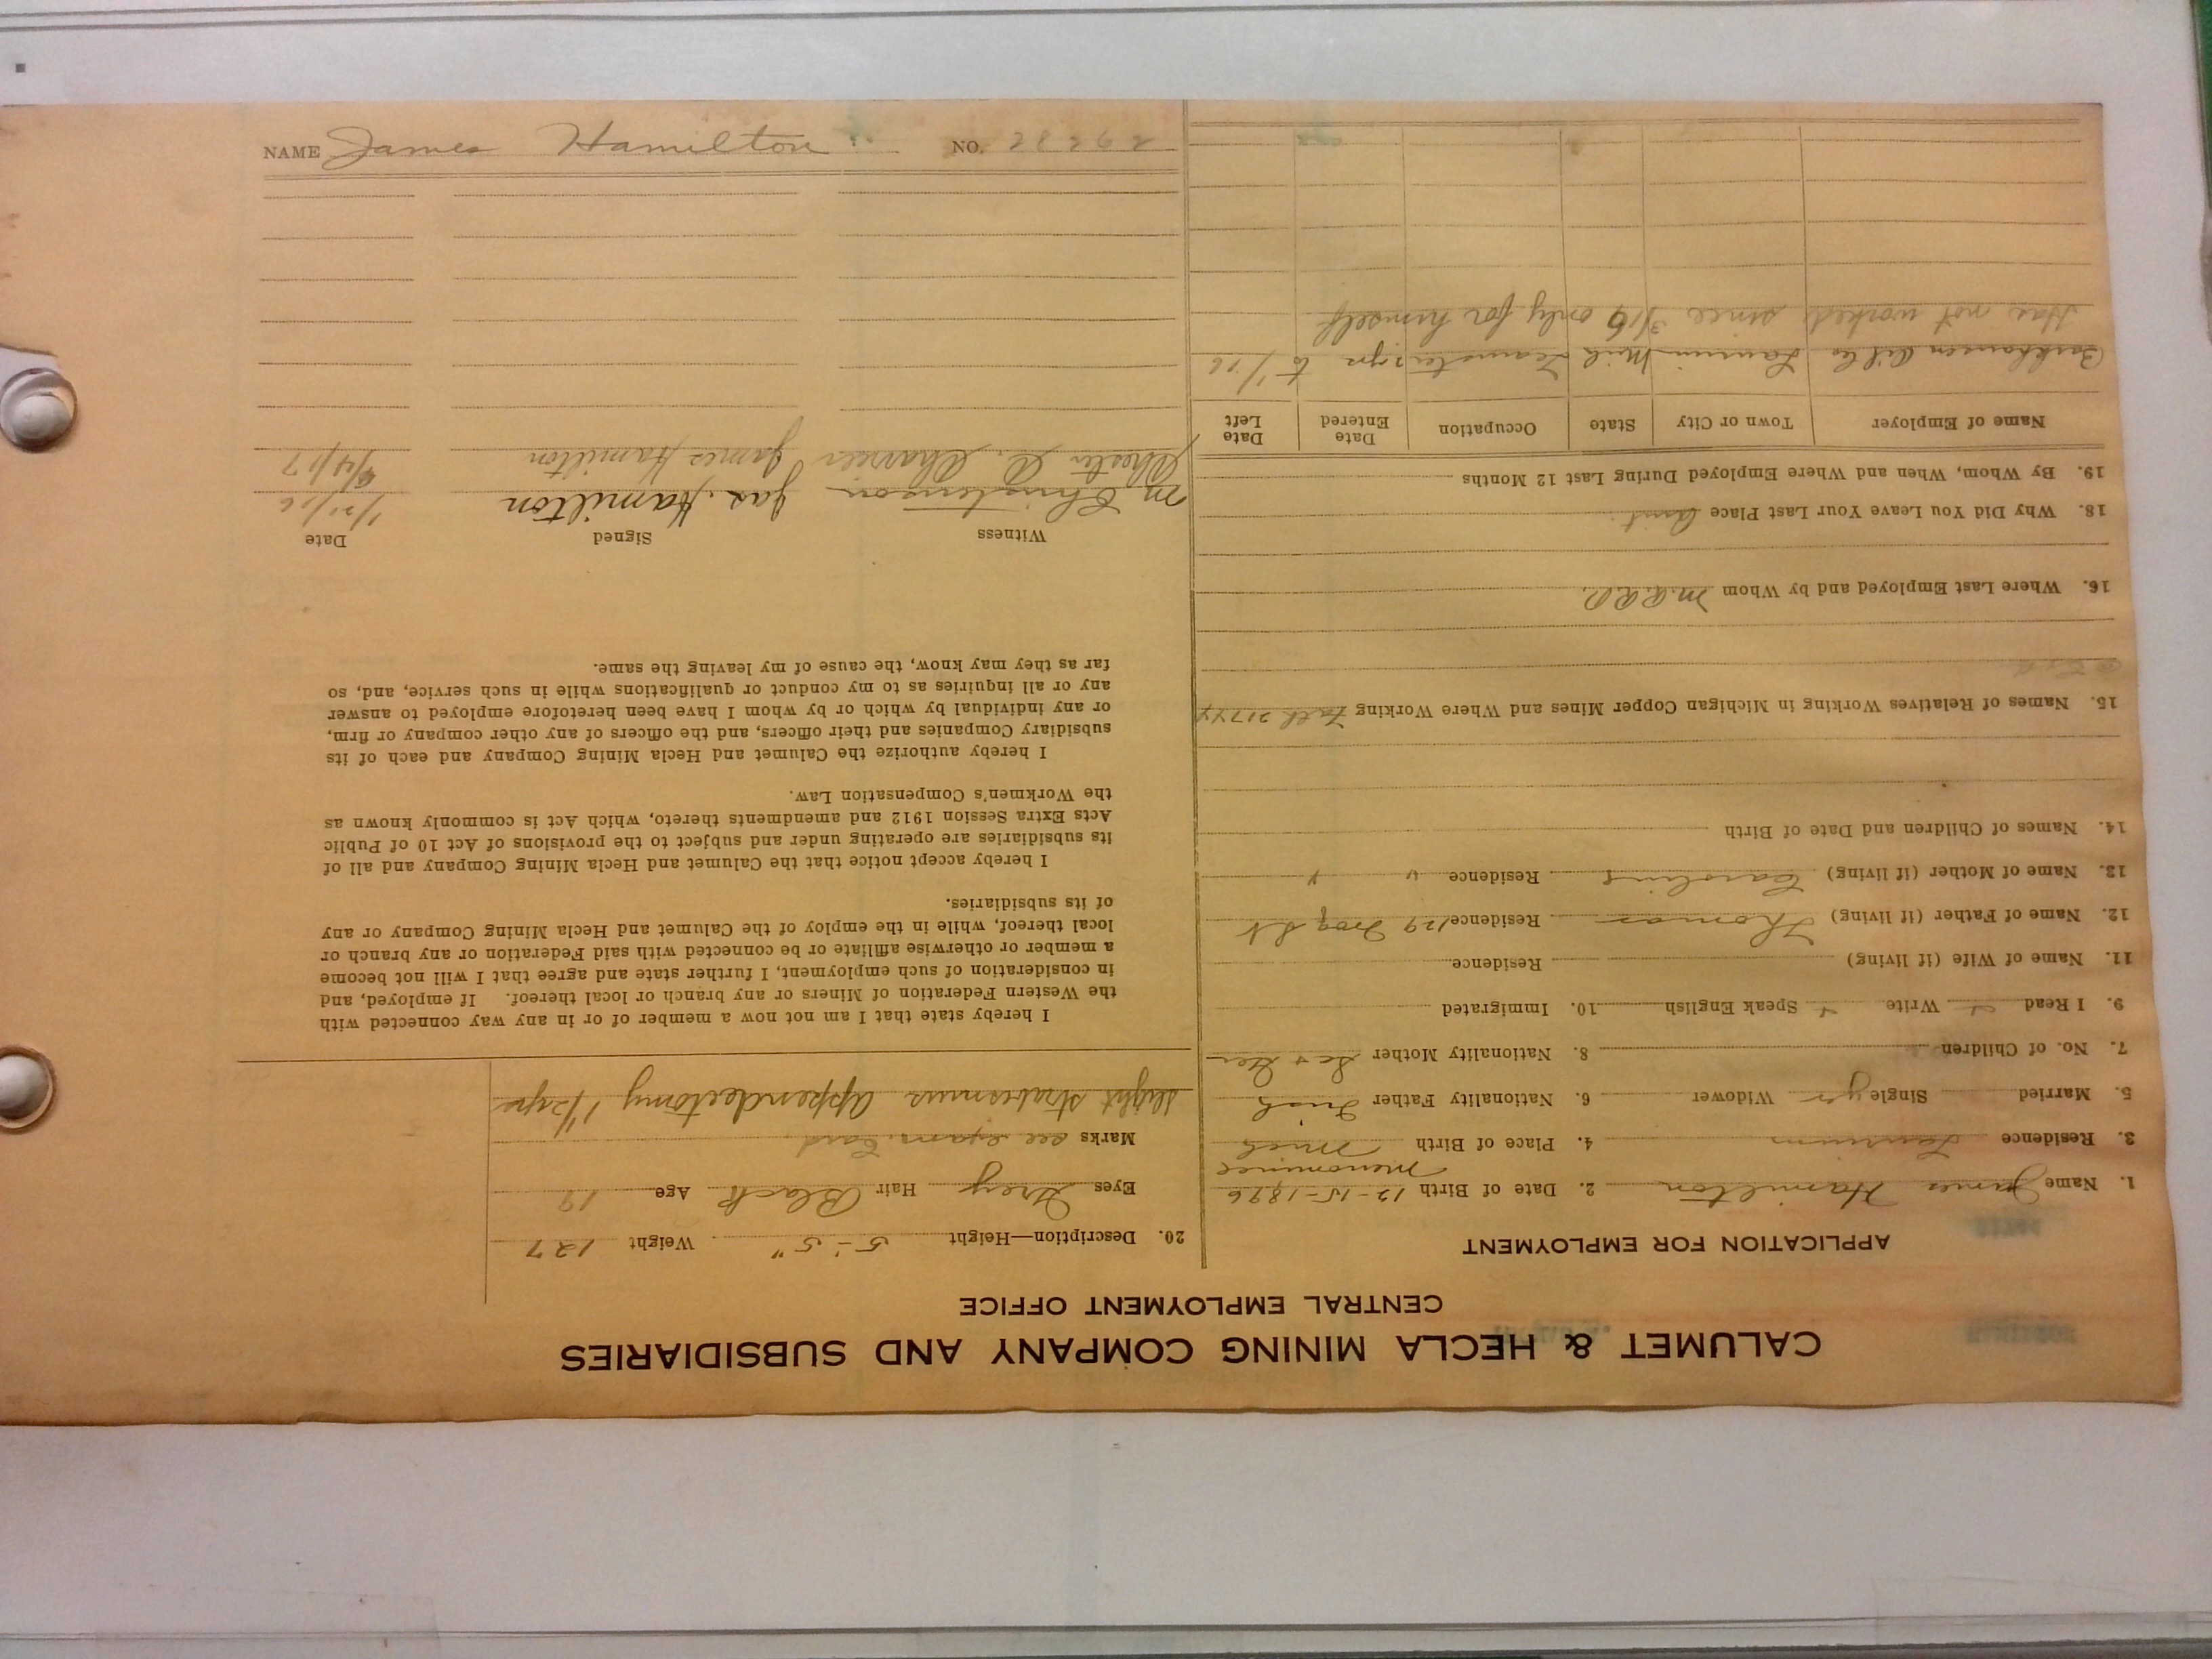 CALUMET & HECLA MINING COMPANY AND SUBSIDIARIES
CENTRAL EMPLOYMENT OFFICE
APPLICATION FOR EMPLOYMENT
1. Name James Hamilton 2. Date of Birth 12-15-1896
Menominee
3. Residence Laurium 4. Place of Birth Mich
5. Married Single yes Widower 6. Nationality Father Irish
7. No. of Children 8. Nationality Mother
9. I Read Write Speak English 10. Immigrated
11. Name of Wife (if living) Residence
12. Name of Father (if living) Thomas Residence 129 St
13. Name of Mother (if living) Caroline Residence " "
14. Names of Children and Date of Birth
15. Names of Relatives Working in Michigan Copper Mines and Where Working Fath 21744
16. Where Last Employed and by Whom
18. Why Did You Leave Your Last Place
19. By Whom, When and Where Employed During Last 12 Months
Name of Employer Town or City State Occupation Date Entered Date Left
Oil Co Laurium Mich Teamster 1/16
Has not worked since 3/16 only for himself
20. Description—Height 5'-5" Weight 127
Eyes Grey Hair Black Age 19
Marks see exam. Card
slight strabismus appendectomy 1 1/2 yrs
I hereby state that I am not now a member of or in any way connected with
the Western Federation of Miners or any branch or local thereof. If employed, and
in consideration of such employment, I further state and agree that I will not become
a member or otherwise affiliate or be connected with said Federation or any branch or
local thereof, while in the employ of the Calumet and Hecla Mining Company or any
of its subsidiaries.
I hereby accept notice that the Calumet and Hecla Mining Company and all of
its subsidiaries are operating under and subject to the provisions of Act 10 of Public
Acts Extra Session 1912 and amendments thereto, which Act is commonly known as
the Workmen's Compensation Law.
I hereby authorize the Calumet and Hecla Mining Company and each of its
subsidiary Companies and their officers, and the officers of any other company or firm,
or any individual by which or by whom I have been heretofore employed to answer
any or all inquiries as to my conduct or qualifications while in such service, and, so
far as they may know, the cause of my leaving the same.
Witness Signed Date
M. Christenson Jas. Hamilton 1/21/16
Chester James Hamilton /4/17
NAME James Hamilton NO. 28262